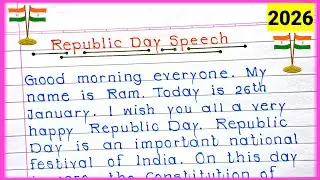 2026
Republic Day Speech
Good morning everyone. My
name is Ram. Today is 26th
January. I wish you all a very
happy Republic Day. Republic
Day is an important national
festival of India. On this day
the Constitution of